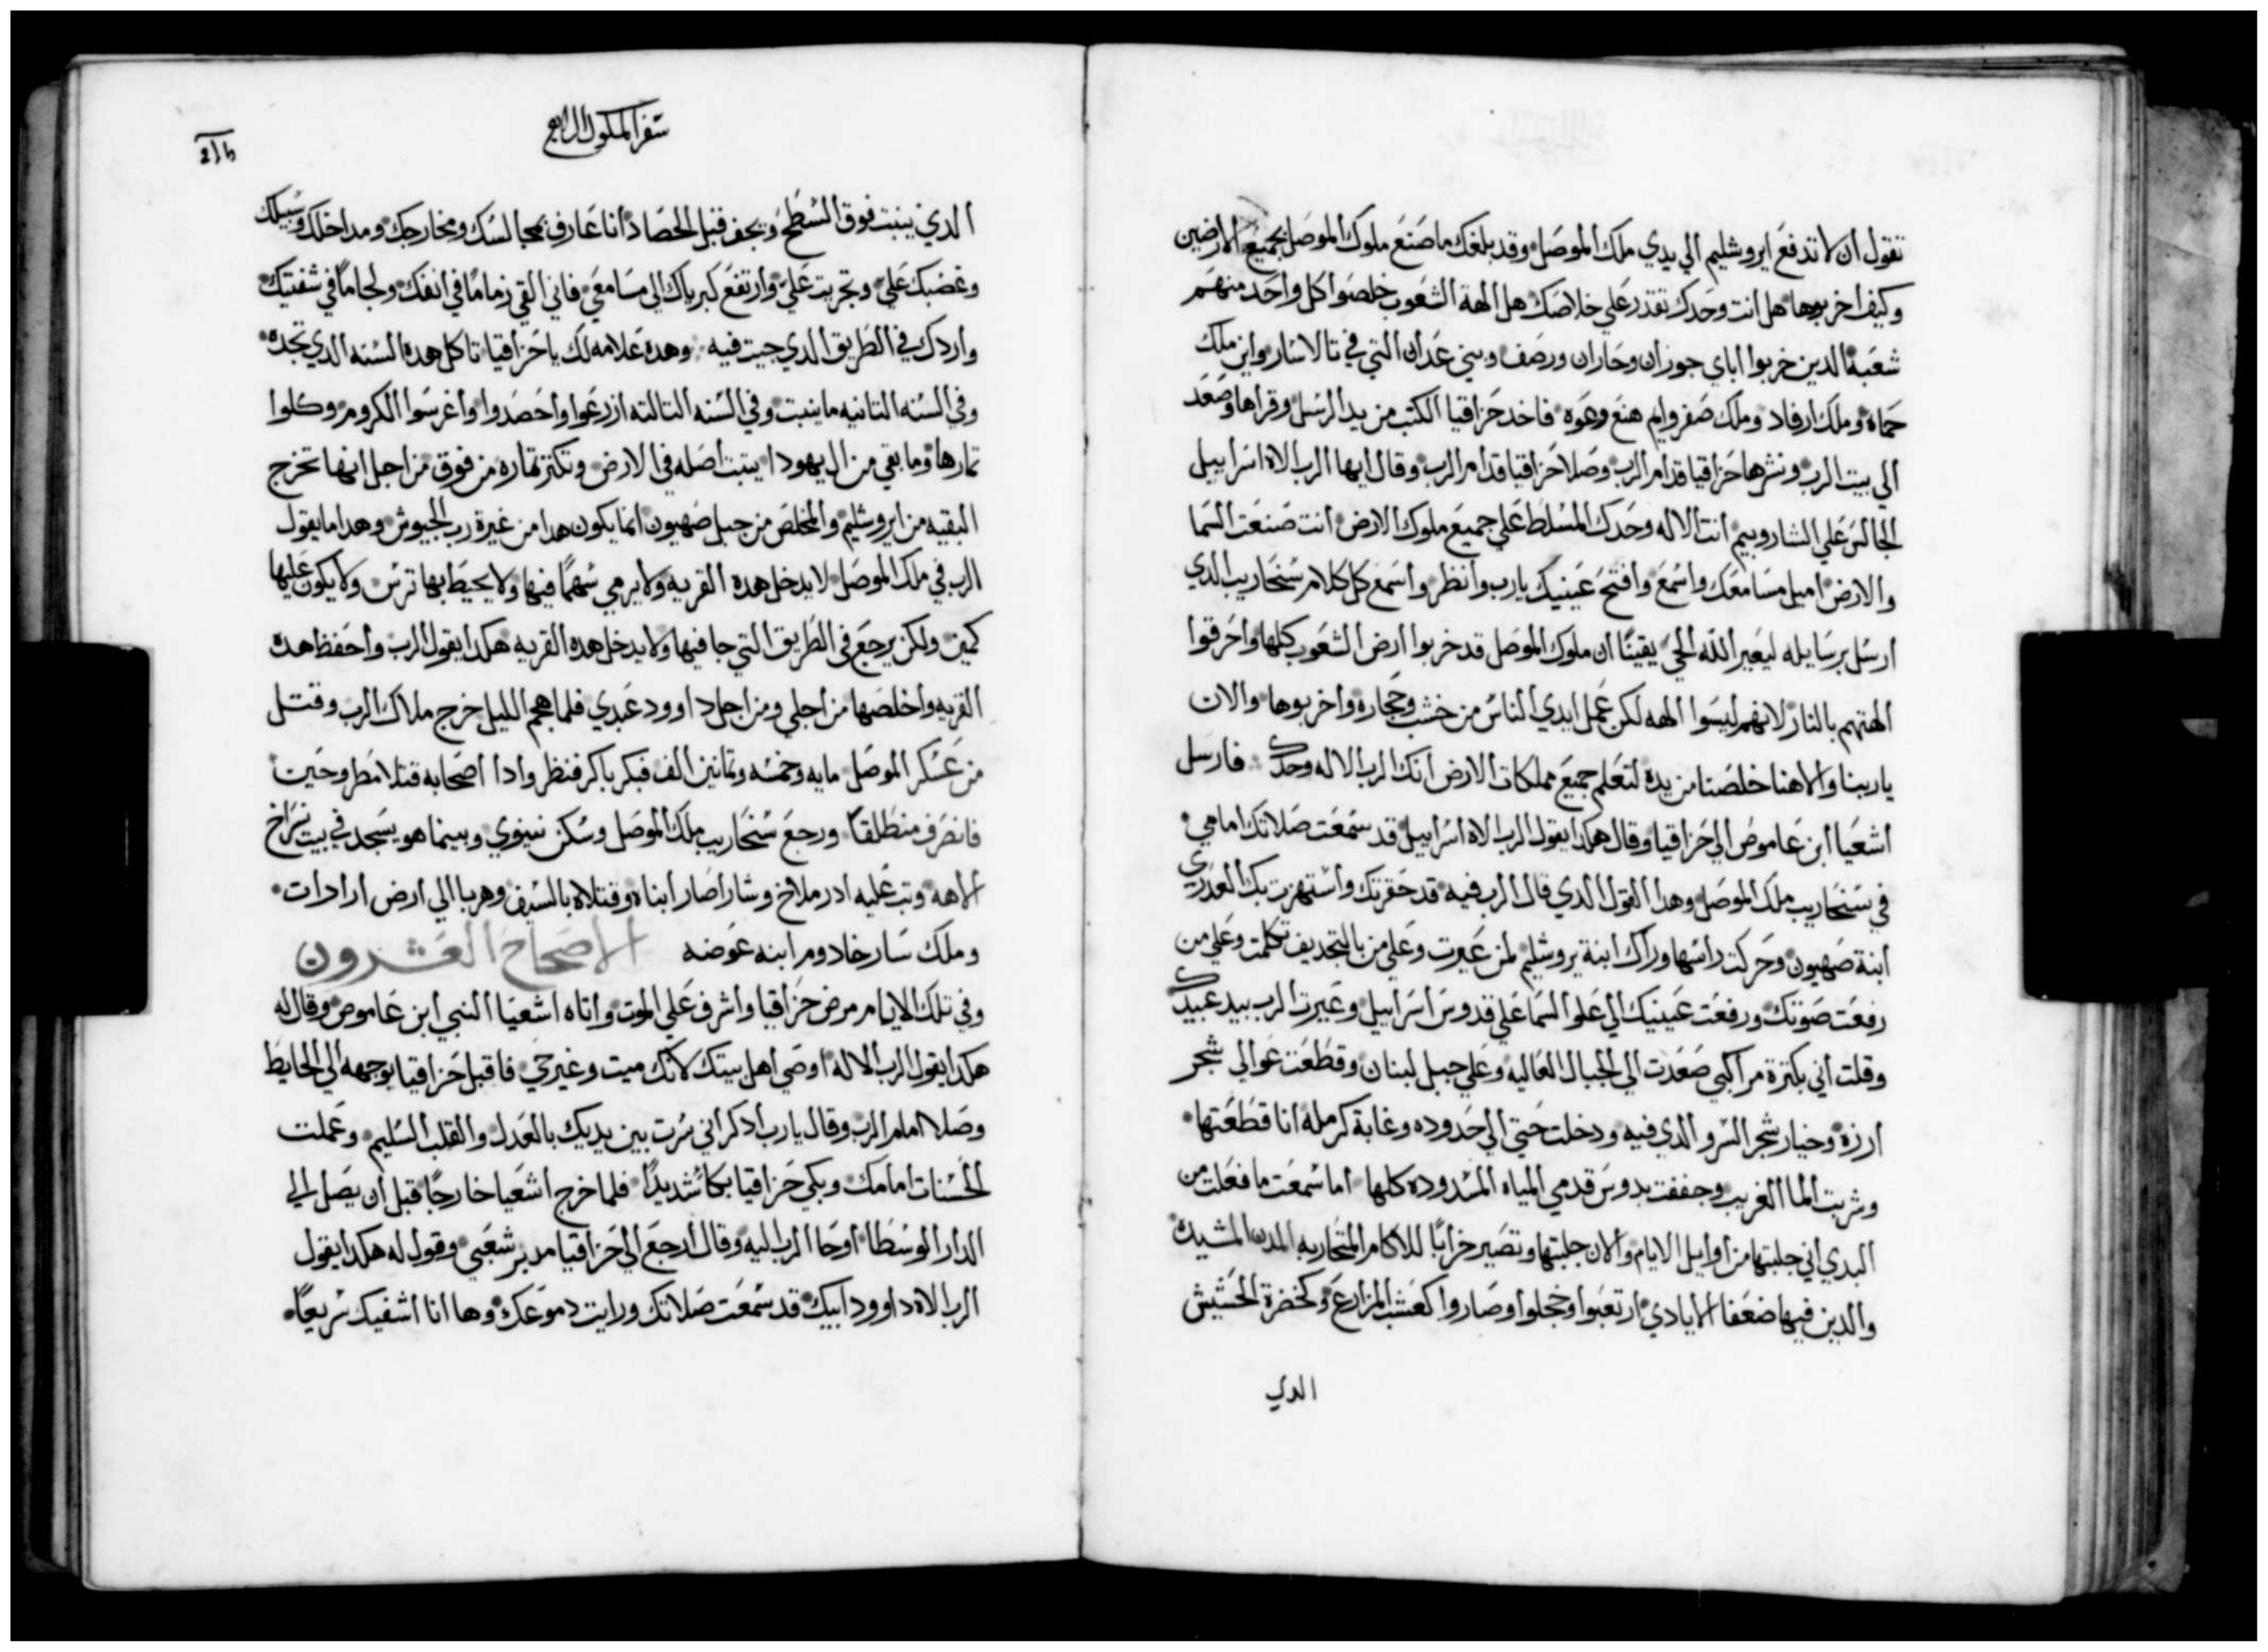 تقول ان لا تدفع ايروشليم الي يدي ملك الموصل وقد بلغك ما صنع ملوك الموصل بجميع الارضين
وكيف اخربوها هل انت وحدك تقدر علي خلاصك هل الهة الشعوب خلصوا كل واحد منهم
شعبه الدين خربوا اباي جوزان وحاران ورصف وبني عدان التي في تالاسار واين ملك
حماة وملك ارفاد وملك صفروايم هنع وعوه فاخد حزاقيا الكتب من يد الرسل وقراها وصعد
الي بيت الرب ونشرها حزاقيا قدام الرب وصلا حزاقيا قدام الرب وقال ايها الرب الاه اسراييل
الجالس علي الشاروبيم انت الاله وحدك المسلط علي جميع ملوك الارض انت صنعت السما
والارض اميل مسامعك واسمع وافتح عينيك يارب وانظر واسمع كل كلام سنحاريب الدي
ارسل برسايله ليعير الله الحي يقينًا ان ملوك الموصل قد خربوا ارض الشعوب كلها واحرقوا
الهتهم بالنار لانهم ليسوا الهه لكن عمل ايدي الناس من خشب وحجاره واخربوها والان
ياربنا والاهنا خلصنا من يده لتعلم جميع مملكات الارض انك الرب الاله وحدك فارسل
اشعيا ابن عاموص الي حزاقيا وقال هكدا يقول الرب الاه اسراييل قد سمعت صلاتك امامي
في سنحاريب ملك الموصل وهدا القول الدي قال الرب فيه قد حقرتك واستهزت بك العدري
ابنة صهيون وحركت راسها وراك ابنة يروشليم لمن عيرت وعلي من بالتجديف تكلمت وعلي من
رفعت صوتك ورفعت عينيك الي علو السما علي قدوس اسراييل وعيرت الرب بيد عبيدك
وقلت اني بكترة مراكبي صعدت الي الجبال العاليه وعلي جبل لبنان وقطعت عوالي شجر
ارزه وخيار شجر السرو الدي فيه ودخلت حتي الي حدوده وغابة كرمله انا قطعتها
وشربت الما الغريب وجففت بدوس قدمي المياه المسدوده كلها اما سمعت ما فعلت من
البدي اني جلبتها من اوايل الايام والان جلبتها وتصير خرابًا للاكام المتحاربه المدن المشيده
والدين فيها ضعفا الايادي ارتعبوا وخجلوا وصاروا كعشب المزارع وكخضرة الحشيش
الدي
سفر الملوك الرابع
الدي ينبت فوق السطح ويجف قبل الحصاد انا عارف بمجالسك ومخارجك ومداخلك وسبيلك
وغضبك علي وتجريت علي وارتفع كبرياك الي مسامعي فاني القي زمامًا في انفك ولجامًا في شفتيك
واردك في الطريق الدي جيت فيه وهده علامه لك يا حزاقيا تاكل هده السنه الدي تجده
وفي السنه التانيه ما ينبت وفي السنه التالته ازرعوا واحصدوا واغرسوا الكروم وكلوا
تمارها وما بقي من ال يهودا يتبت اصله في الارض وتكتر تماره من فوق من اجل انها تخرج
البقيه من ايروشليم والمخلص من جبل صهيون انما يكون هدا من غيرة رب الجيوش وهدا ما يقول
الرب في ملك الموصل لا يدخل هده القريه ولا يرمي سهمًا فيها ولا يحيط بها ترس ولا يكون عليها
كمين ولكن يرجع في الطريق التي جا فيها ولا يدخل هده القريه هكدا يقول الرب واحفظ هده
القريه واخلصها من اجلي ومن اجل داوود عبدي فلما هجم الليل خرج ملاك الرب وقتل
من عسكر الموصل مايه وخمسه وتمانين الف فبكر باكر فنظر وادا اصحابه قتلا مطروحين
فانصرف منطلقًا ورجع سنحاريب ملك الموصل وسكن نينوي وبينما هو يسجد في بيت نسراخ
الاهه وتب عليه ادرملاخ وشاراصار ابناه وقتلاه بالسيف وهربا الي ارض ارادات
وملك سارخادوم ابنه عوضه الاصحاح العشرون
وفي تلك الايام مرض حزاقيا واشرف علي الموت واتاه اشعيا النبي ابن عاموص وقال له
هكدا يقول الرب الاله اوصي اهل بيتك لانك ميت وغير حي فاقبل حزاقيا بوجهه الي الحايط
وصلا امام الرب وقال يارب ادكر اني سرت بين يديك بالعدل والقلب السليم وعملت
الحسنات امامك وبكي حزاقيا بكا شديدًا فلما خرج اشعيا خارجًا قبل ان يصل الي
الدار الوسطا اوحا الرب اليه وقال ارجع الي حزاقيا مدبر شعبي وقول له هكدا يقول
الرب الاه داوود ابيك قد سمعت صلاتك ورايت دموعك وها انا اشفيك سريعًا